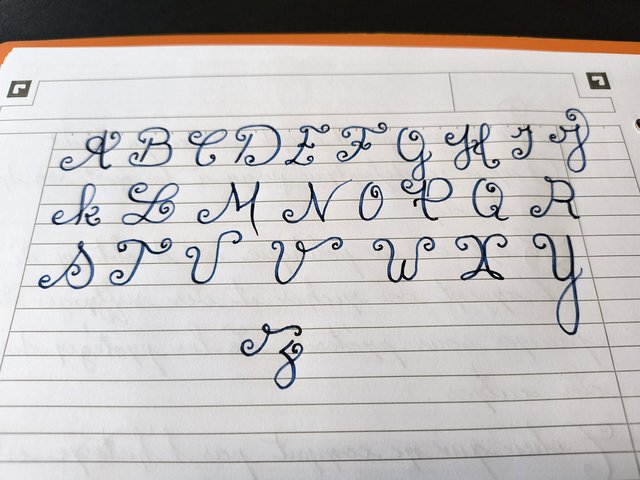 A B C D E F G H I J
K L M N O P Q R
S T U V W X Y
Z